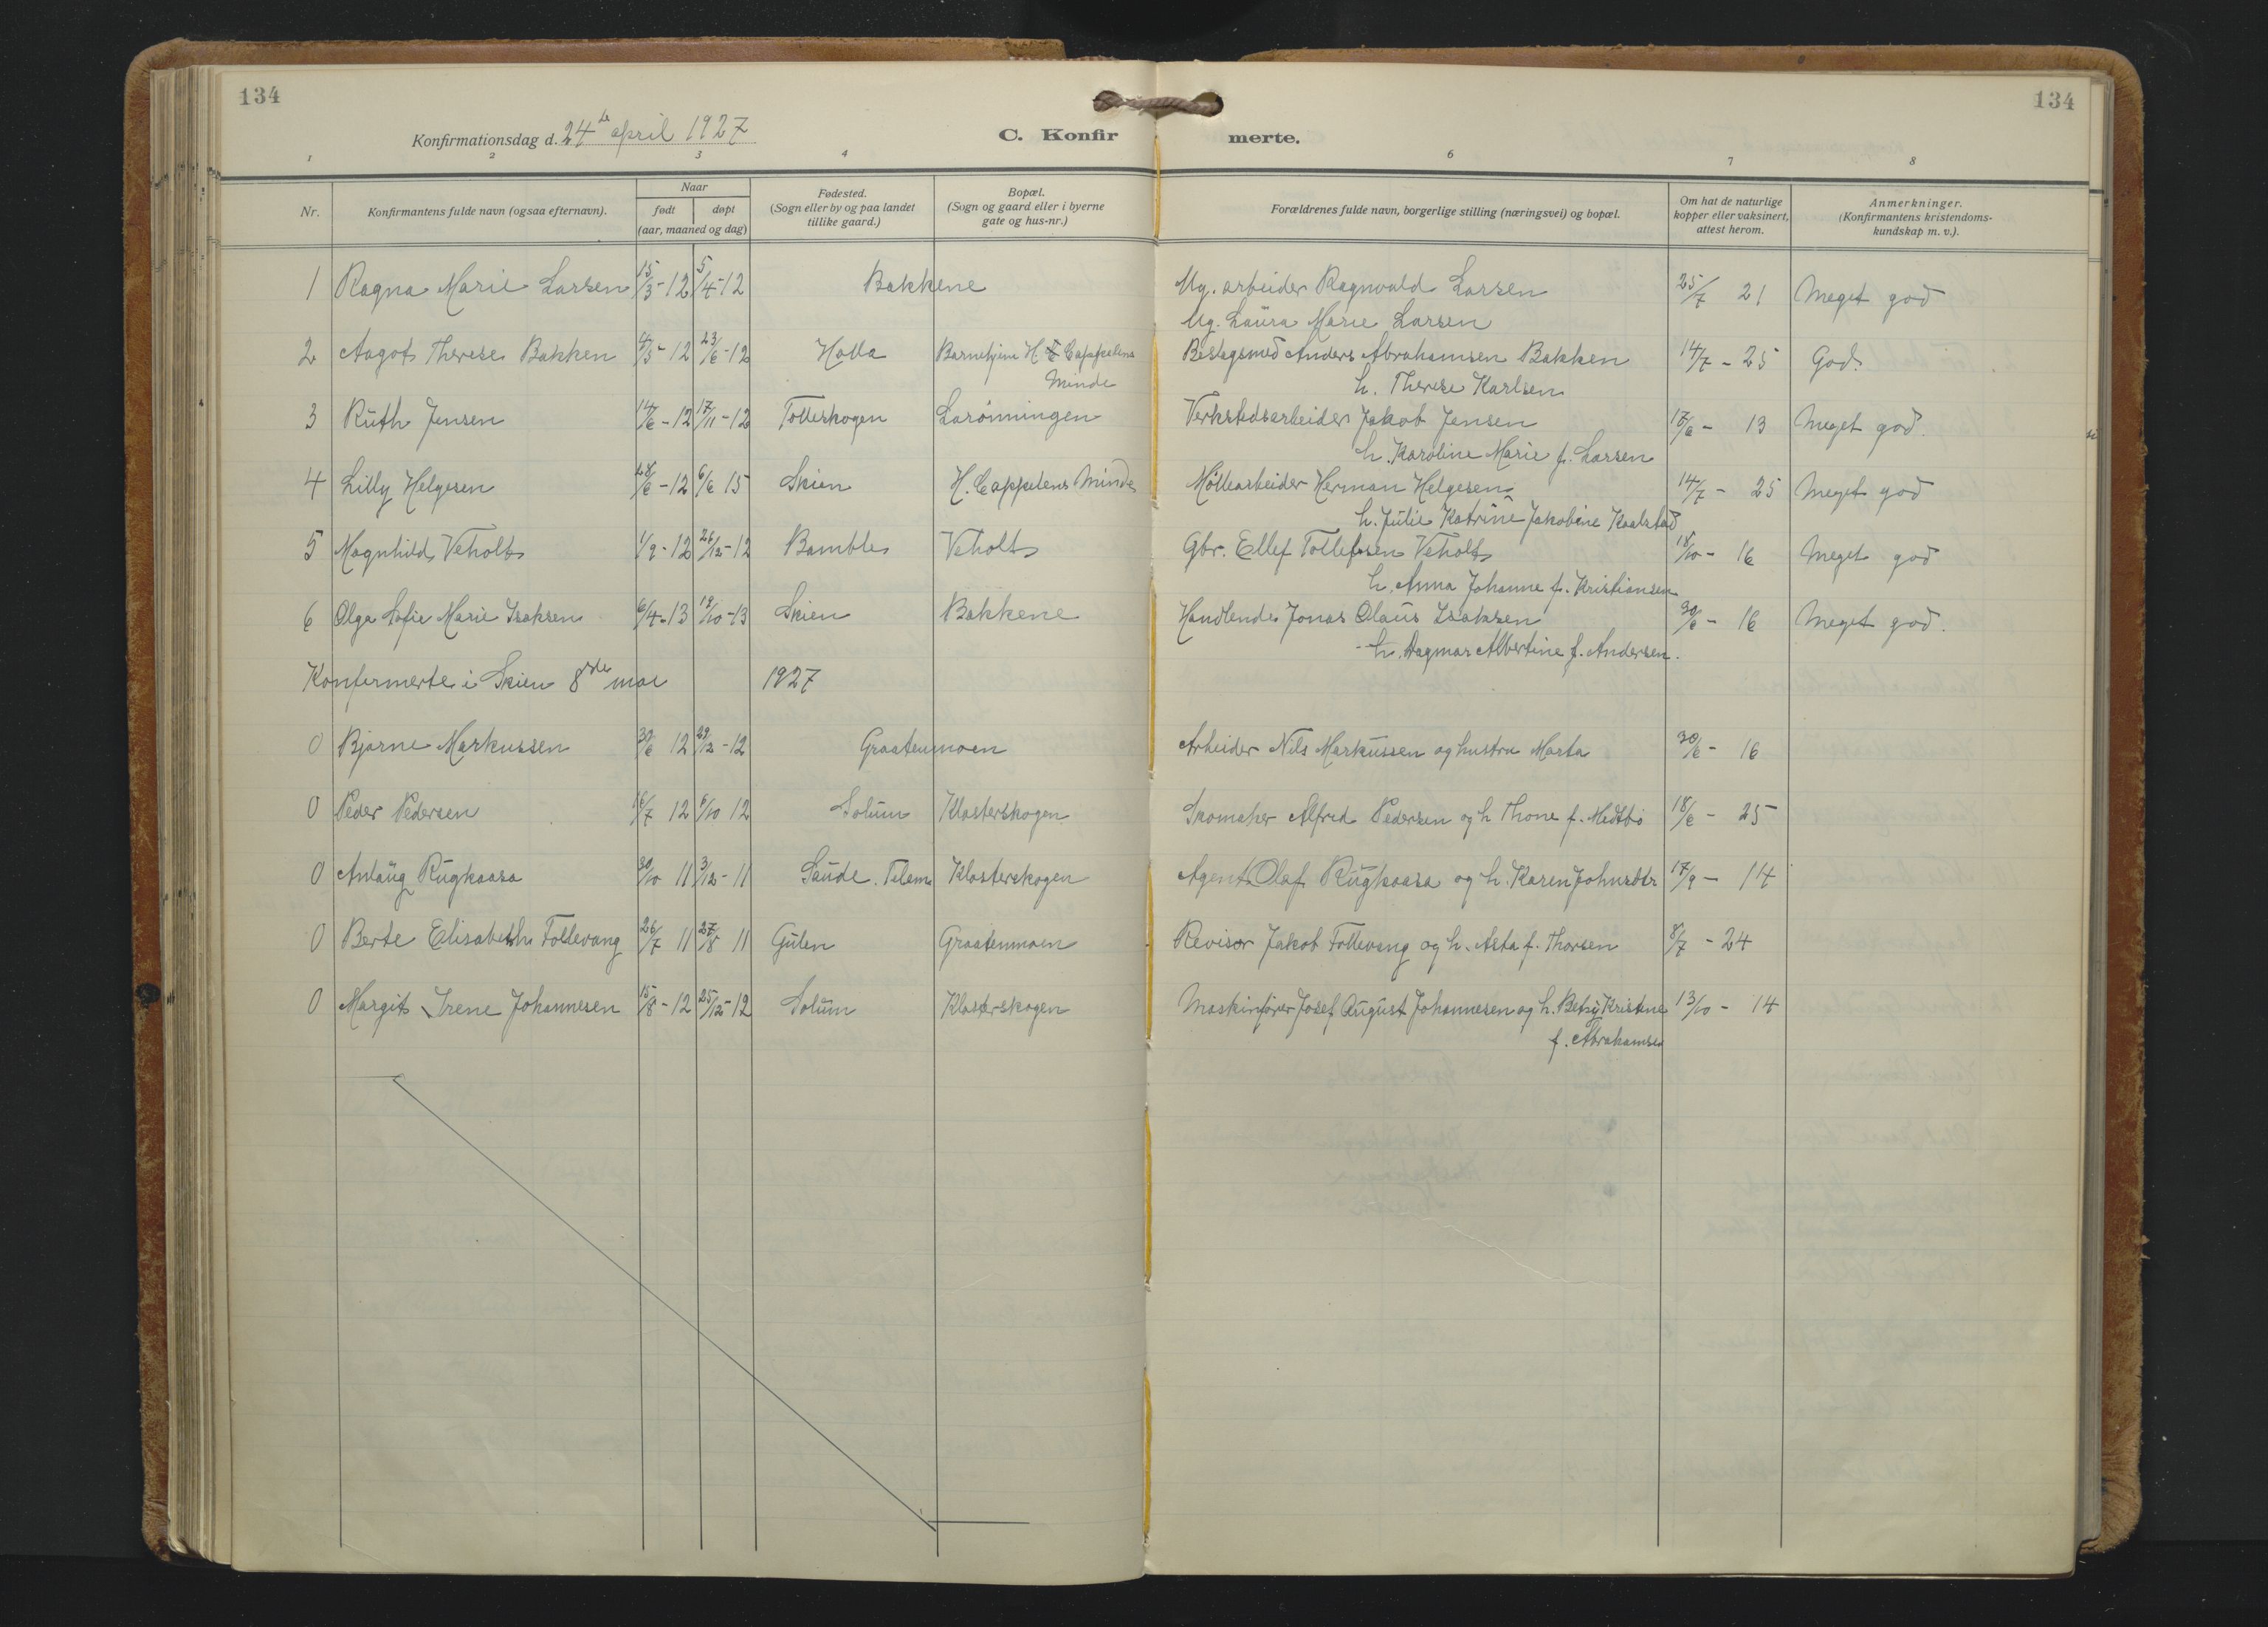 134
134
Konfirmationsdag d. 24de april 1927
C. Konfir merte.
1 2 3 4 6 7 8
Nr. Konfirmantens fulde navn (ogsaa efternavn). Naar født døpt (aar, maaned og dag) Fødested. (Sogn eller by og paa landet tillike gaard.) Bopæl. (Sogn og gaard eller i byerne gate og hus-nr.) Forældrenes fulde navn, borgerlige stilling (næringsvei) og bopæl. Om hat de naturlige kopper eller vaksinert, attest herom. Anmerkninger. (Konfirmantens kristendoms-kundskap m. v.).
1 Ragna Marie Larsen 15/3-12 5/4-12 Bakkene Ug. arbeider Ragnvald Larsen 25/7 21 Meget god
Ug. Laura Marie Larsen
2 Aagot Therese Bakken /5-12 23/6-12 Holla Barnehjem H Cappelens Beslagsmed Anders Abrahamsen Bakken 14/7-25 God
Minde h. Therese Karlsen
3 Ruth Jensen 14/6-12 17/11-12 Tollerskogen Larönningen Verkstedsarbeider Jakob Jensen /6- 13 Meget god.
h. Karoline Marie f. Larsen
4 Lilly Helgesen 28/6-12 6/6 15 Skien H. Cappelens Minde Möllearbeider Herman Helgesen 14/7- 25 Meget god
h. Julie Katrine Jakobine Kaalstad
5 Magnhild Veholt 1/9-12 26/12-12 Bamble Veholt Gbr. Ellef Tollefsen Veholt 18/10- 16 Meget god
h. Anna Johanne f. Kristiansen
6 Olga Sofie Marie Isaksen 6/4-13 12/10-13 Skien Bakkene Handlende Jonas Olaus Isaksen 30/6- 16 Meget god.
h. Dagmar Albertine f. Andersen.
Konfirmerte i Skien 8de mai 1927
0 Bjarne Markussen 30/6 12 29/12-12 Graatenmoen Arbeider Nils Markussen og hustru Marta 30/6- 16
0 Peder Pedersen 16/7 12 6/10 12 Solum Klosterskogen Skomaker Alfred Pedersen og h Thone f. Medtbö 18/6- 25
0 Anlaug Rugkaasa 30/10 11 3/12-11 Saude. Telem Klosterskogen Agent Olaf Rugkaasa og h. Karen Johnsdtr 17/9- 14
0 Berte Elisabeth Follevang 26/7 11 27/8 11 Gulen Graatenmoen Revisor Jakob Follevang og h. Asta f. Thorsen 8/7-24
0 Margit Irene Johannesen 15/8-12 25/12-12 Solum Klosterskogen Maskinfører Josef August Johannesen og h. Betsy Kristine 13/10- 14
f. Abrahamsen